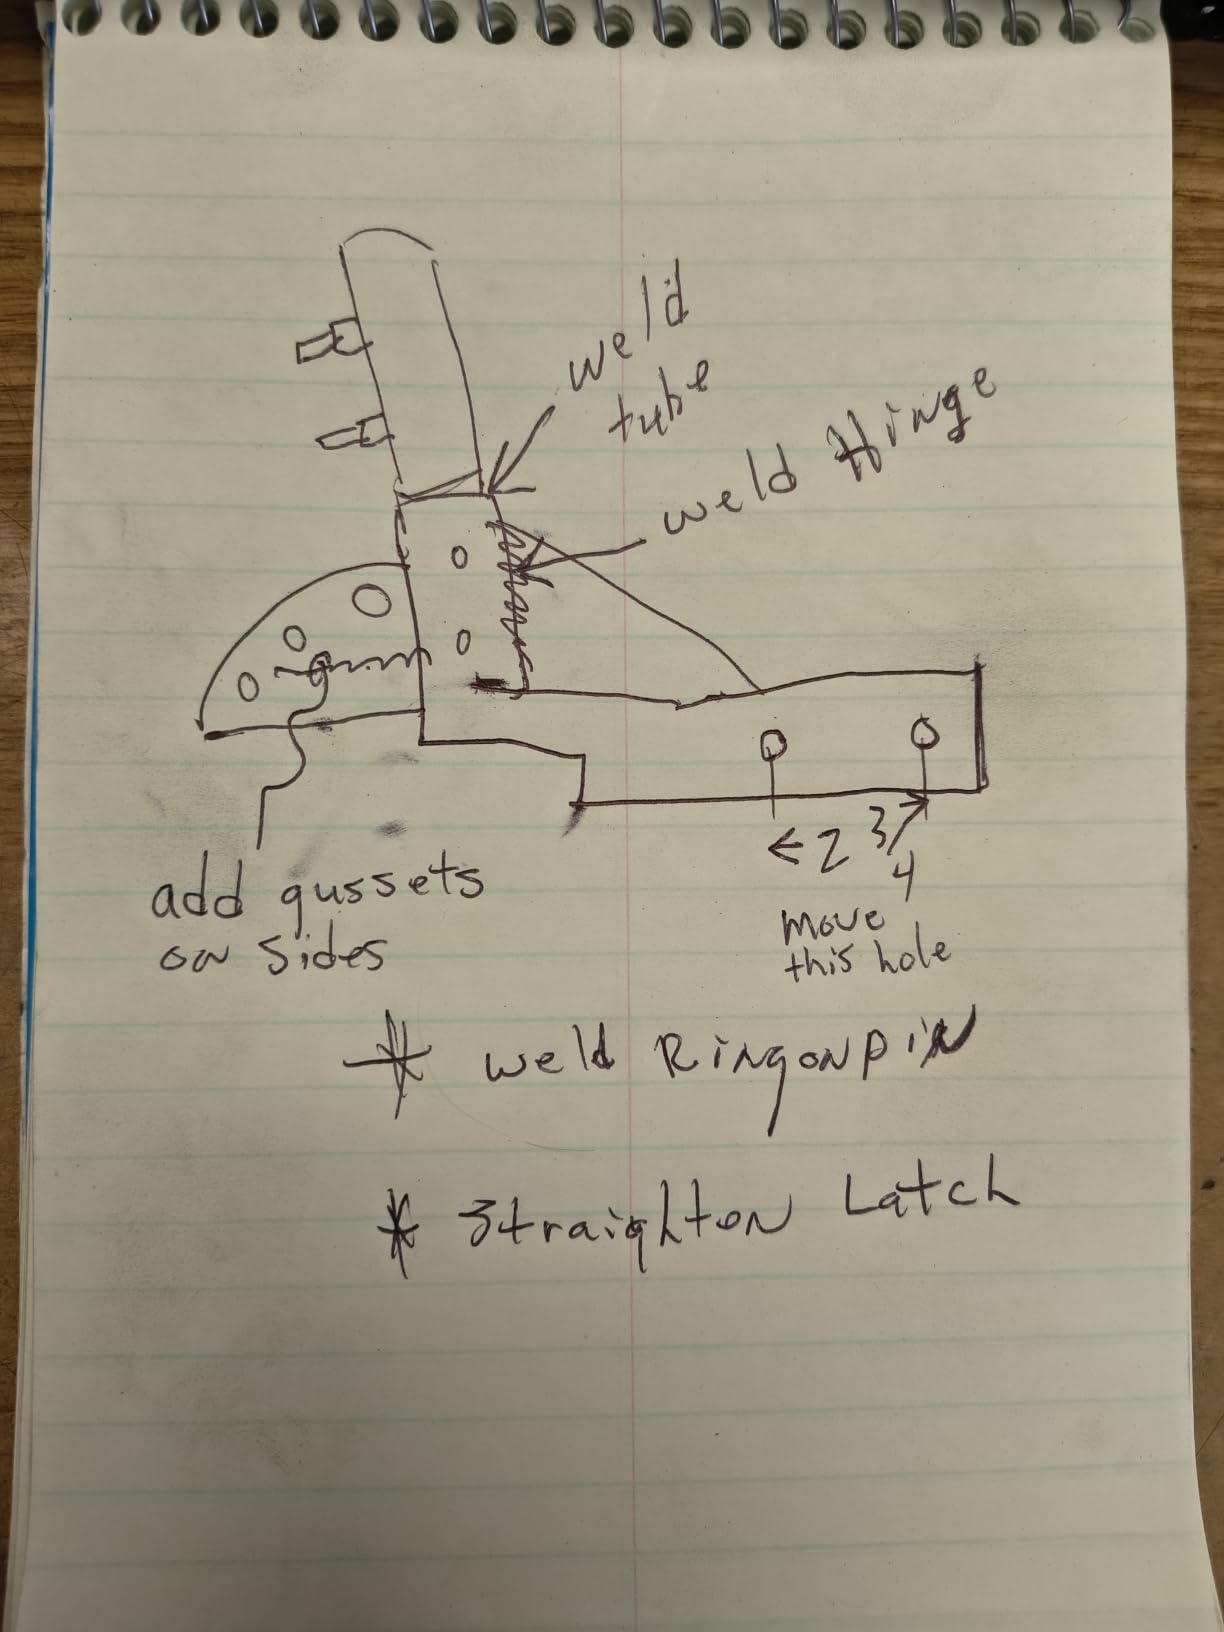 weld
tube
weld Hinge
← 2 3/4
move
this hole
add gussets
on sides
* weld Ring on pin
* Straighton Latch